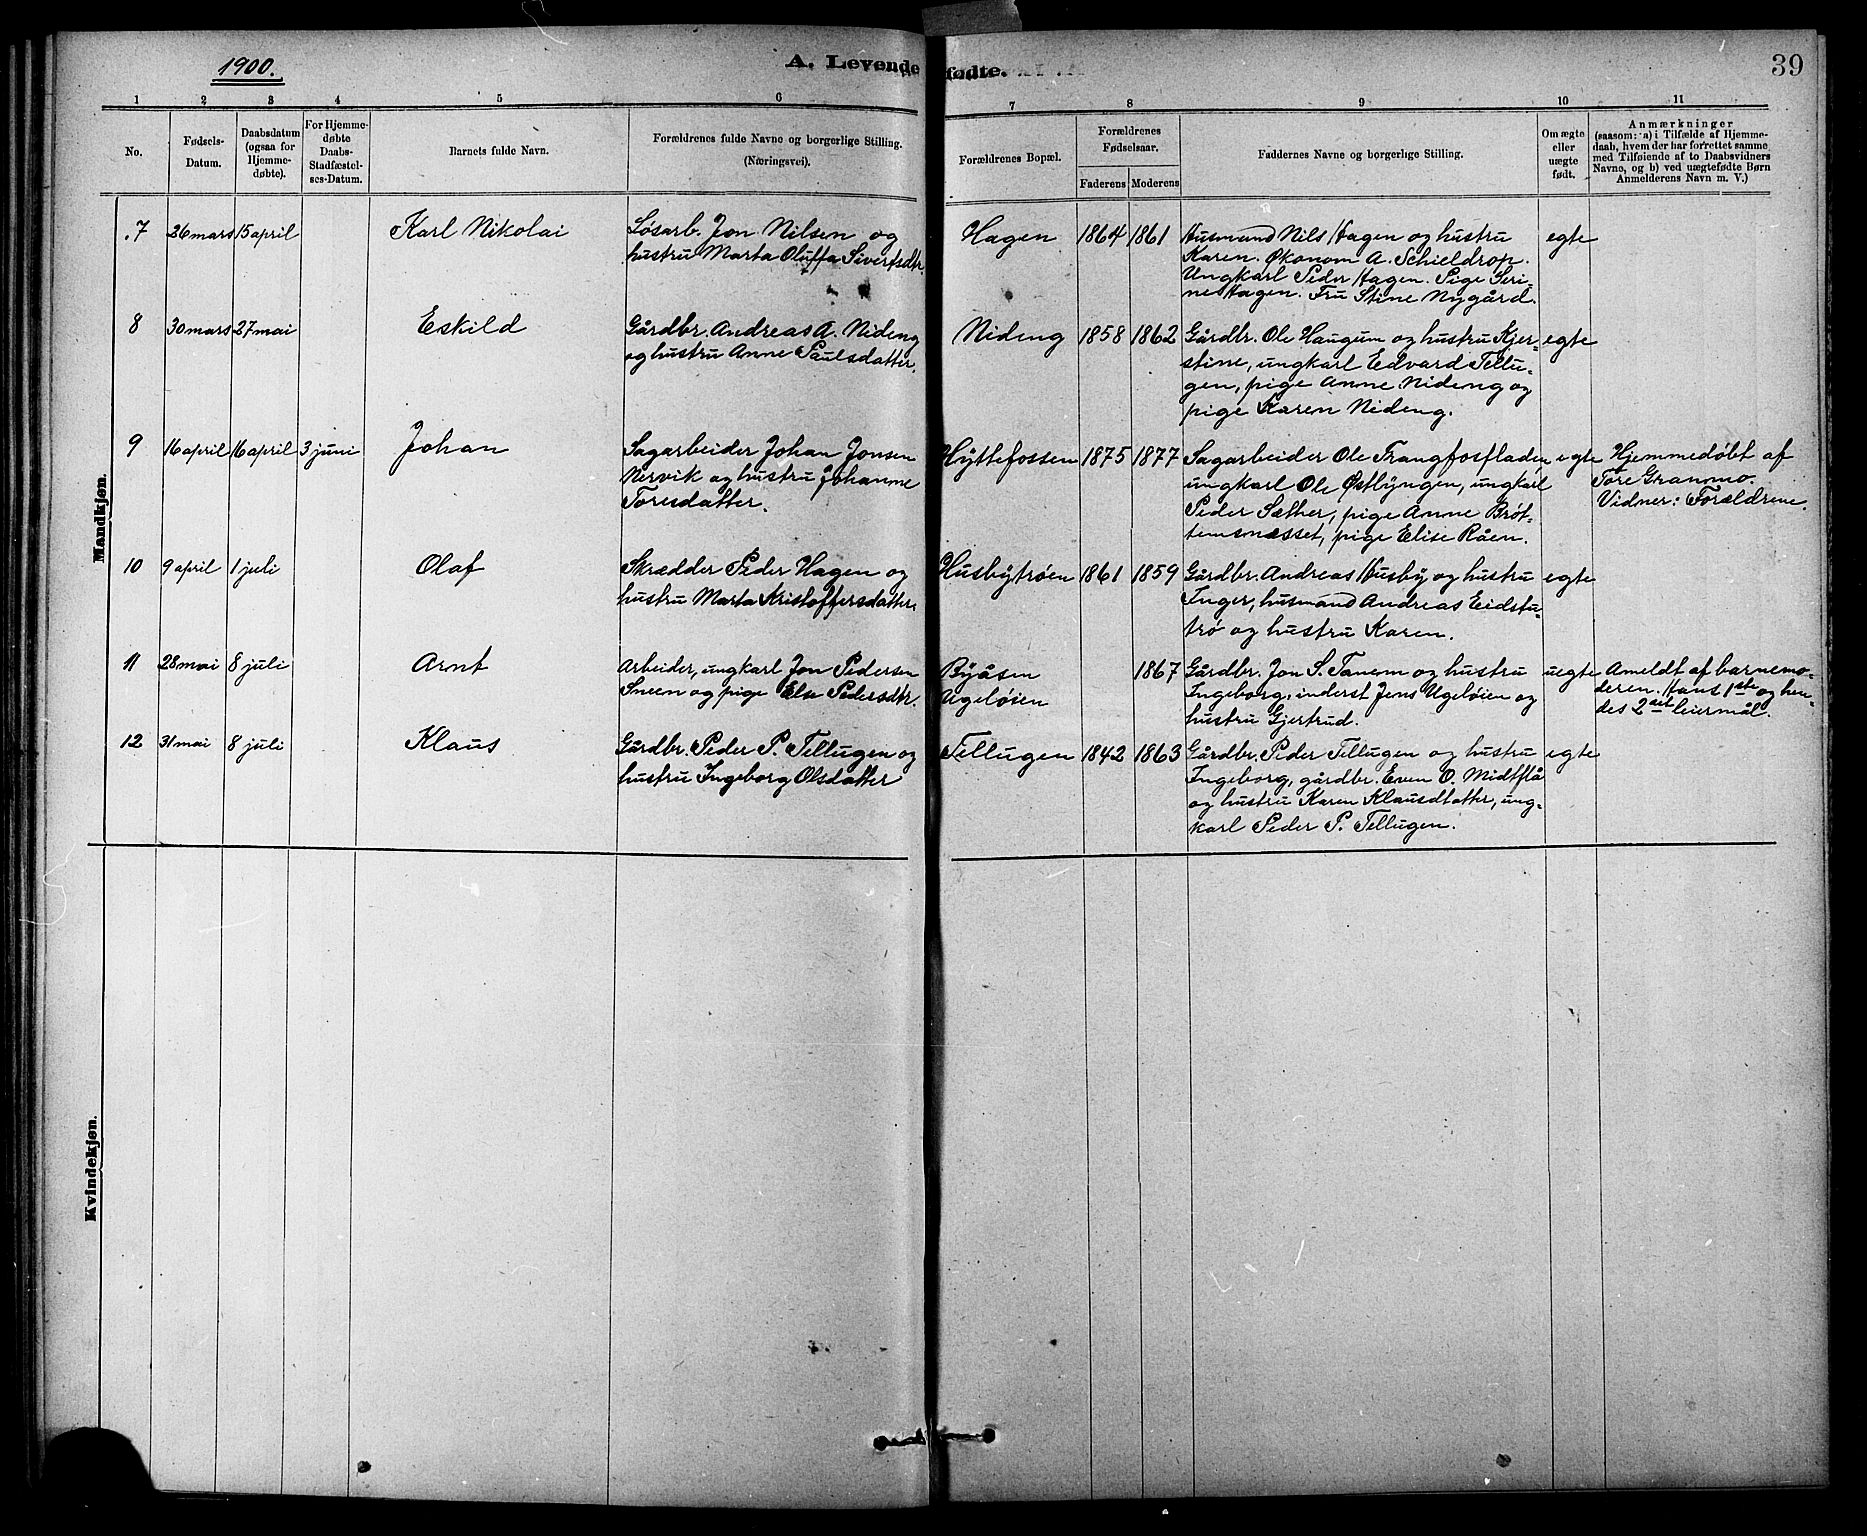 1900.
A. Levende fødte.
39
1 2 3 4 5 6 7 8 9 10 11
No.
Fødsels-
Datum.
Daabsdatum
(ogsaa for
Hjemme-
døbte).
For Hjemme-
døbte
Daabs-
Stadfæstel-
ses-Datum.
Barnets fulde Navn.
Forældrenes fulde Navne og borgerlige Stilling.
(Næringsvei).
Forældrenes Bopæl.
Forældrenes
Fødselsaar.
Faderens Moderens
Faddernes Navne og borgerlige Stilling.
Om ægte
eller
uægte
født.
Anmærkninger
(saasom: a) i Tilfælde af Hjemme-
daab, hvem der har forrettet samme
med Tilføiende af to Daabsvidners
Navne, og b) ved uægtefødte Børn
Anmelderens Navn m. V.)
Mandkjøn.
7 26 mars 15 april Karl Nikolai
Løsarb. Jon Nilsen og
hustru Marta Oluffa Sivertsdtr
Hagen 1864 1861
Husmand Nils Hagen og hustru
Karen. Økonom A. Schieldrop.
Ungkarl Peder Hagen. Pige Seri-
ne Hagen. Fru Stine Nygård.
egte
8 30 mars 27 mai Eskild
Gårdbr. Andreas A. Nideng
og hustru Anne Paulsdatter.
Nideng 1858 1862
Gårdbr. Ole Haugum og hustru Kjer-
stine, ungkarl Edvard Tellu-
gen, pige Anne Nideng og
pige Karen Nideng.
egte
9 16 april 16 april 3 juni Johan
Sagarbeider Johan Jonsen
Nervik og hustru Johanne
Toresdatter.
Hyttefossen 1875 1877
Sagarbeider Ole Trangfosfladen
ungkarl Ole Østlyngen, ungkarl
Peder Sæther, pige Anne Brøt-
temsnæsset, pige Elise Råen.
egte
Hjemmedøbt af
Tore Granmo.
Vidner: Forældrene.
10 9 april 1 juli Olaf
Skrædder Peder Hagen og
hustru Marta Kristoffersdatter.
Husbytrøen 1861 1859
Gårdbr. Andreas Husby og hustru
Inger, husmand Andreas Eidstu-
trø og hustru Karen.
egte
11 28 mai 8 juli Arnt
Arbeider, ungkarl Jon Pedersen
Sneen og pige Else Pedersdtr.
Byåsen
Ageløien
1867
Gårdbr. Jon S. Tanem og hustru
Ingeborg, inderst Jens Ugeløien og
hustru Gjertrud.
uegte
Ameldt af barnemo-
deren. Hans 1ste og hen-
des 2det leiermål.
12 31 mai 8 juli Klaus
Gårdbr. Peder P. Tellugen og
hustru Ingeborg Olsdatter
Tellugen 1842 1863
Gårdbr. Peder Tellugen og hustru
Ingeborg, gårdbr. Even O. Midtflå
og hustru Karen Klausdtatter, ung-
karl Peder P. Tellugen.
egte
Kvindekjøn.